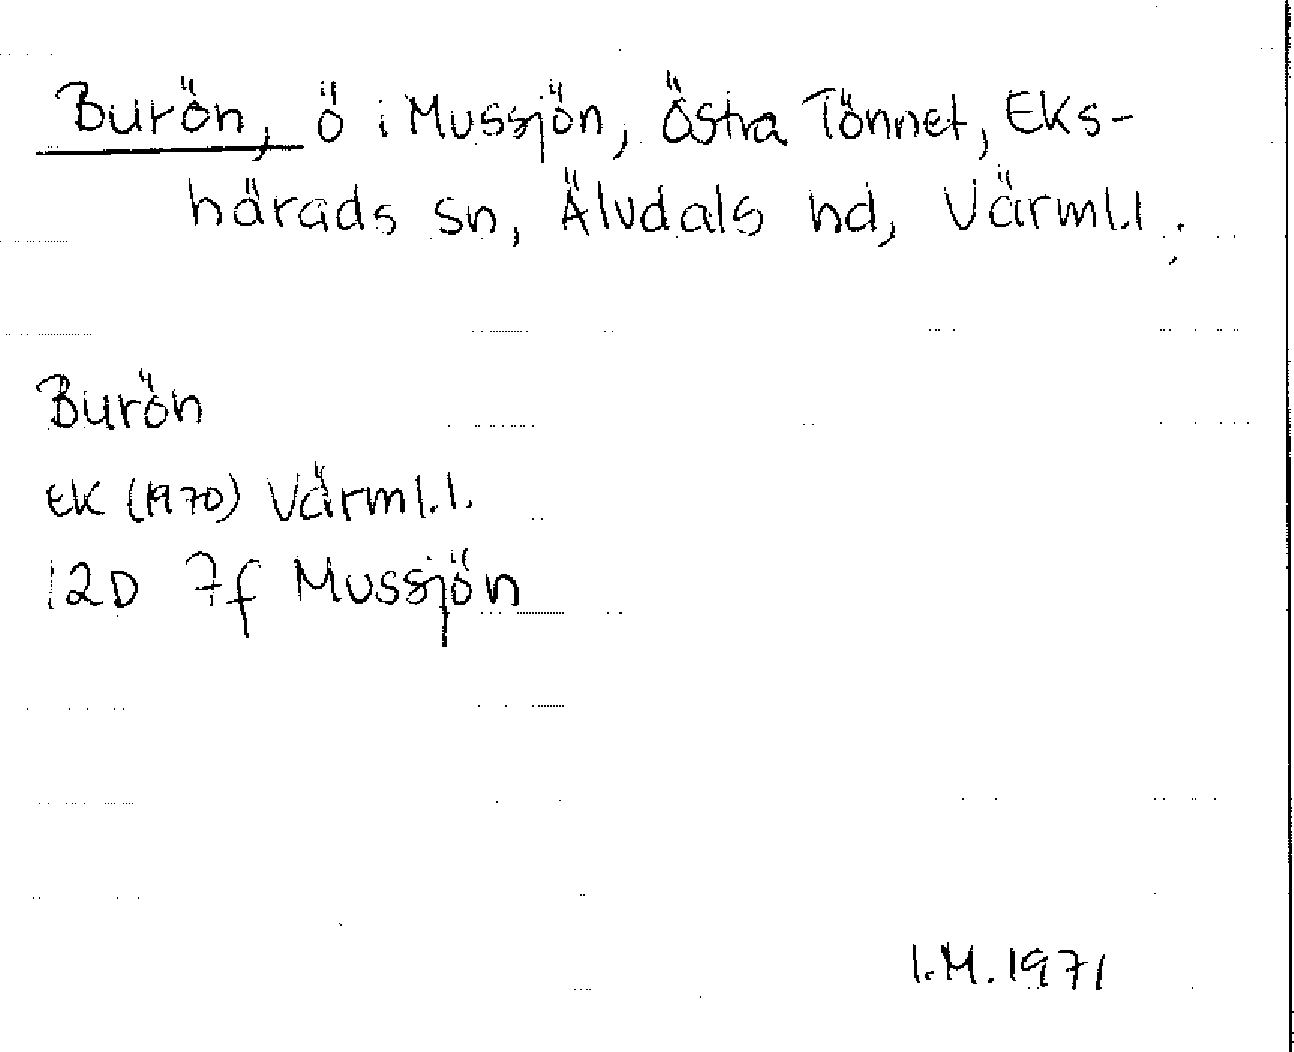 Burön, ö i Mussjön, Östra Tönnet, Eks-
härads sn, Älvdals hd, Värml.l.
Burön
EK (1970) Värml.l.
12D 7f Mussjön
I.M. 1971